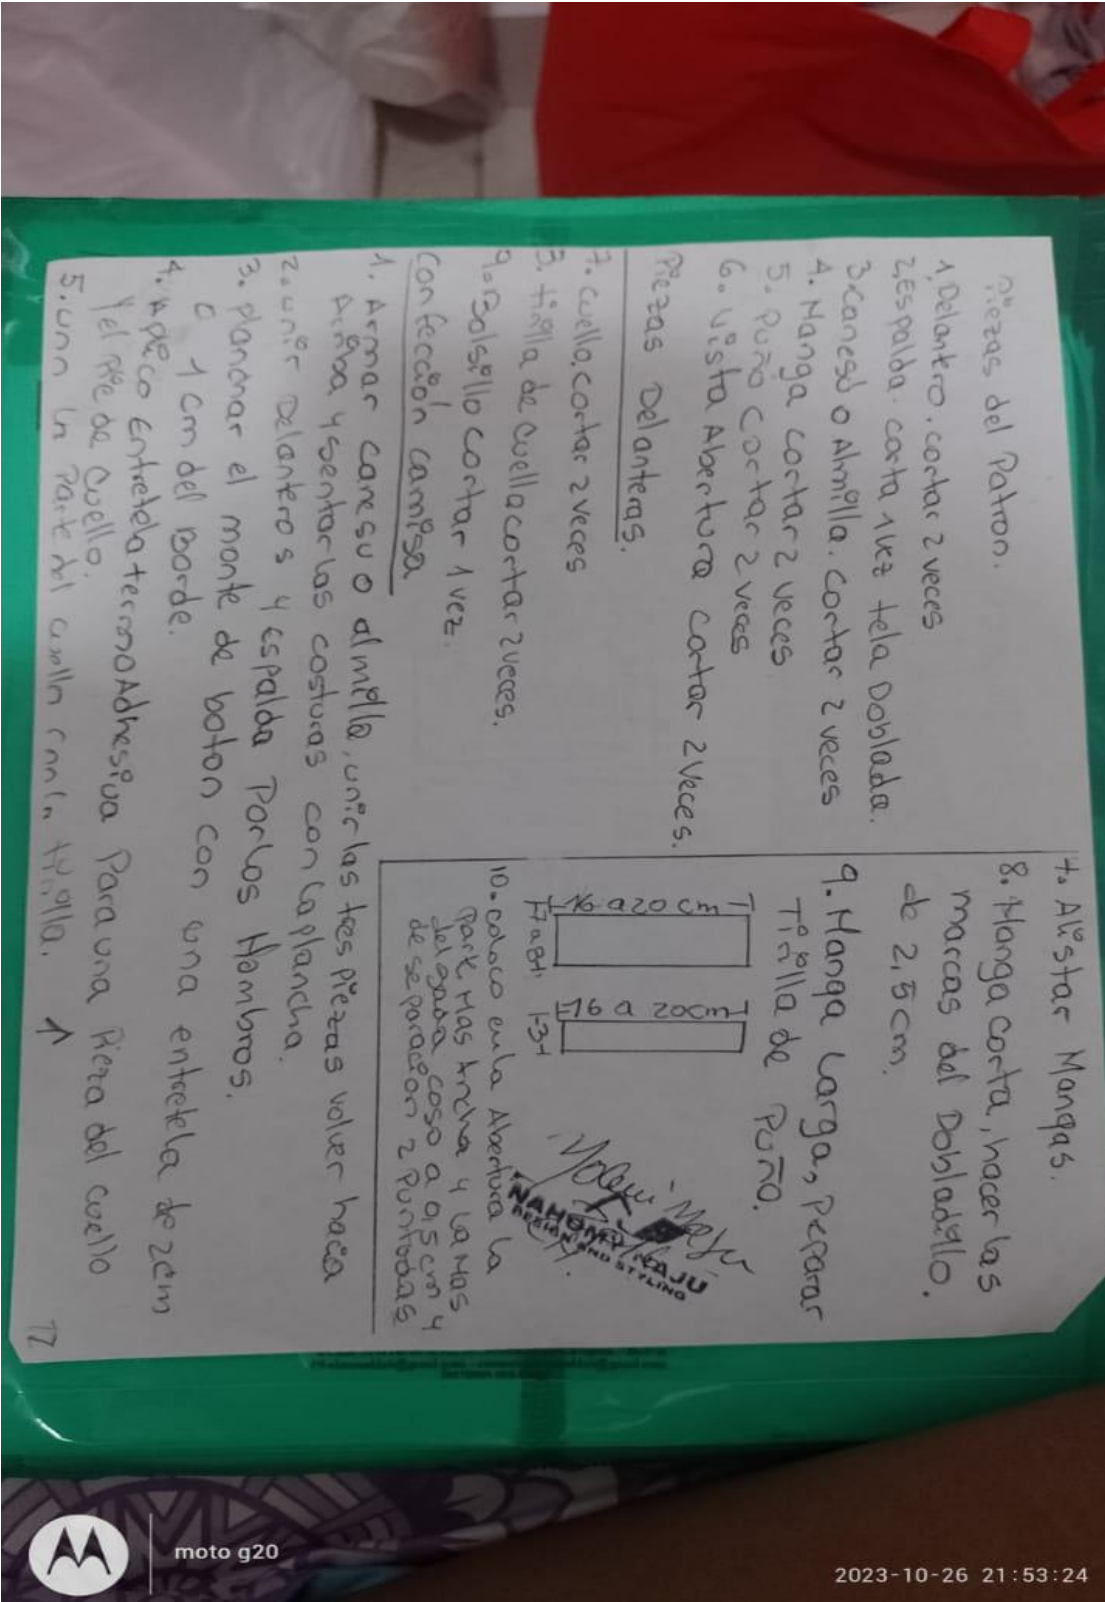 Piezas del Patron.
1, Delantero. cortar 2 veces
2, Espalda. corta 1 vez tela Doblada.
3. Canesd o Almilla. Cortar 2 veces
4. Manga cortar 2 veces
5. Puño cortar 2 veces
6. Vista Abertura cortar 2 veces.
Piezas Delanteras.
7. cuello. cortar 2 veces
8. tirilla de cuello cortar 2 veces.
9. Bolsillo cortar 1 vez.
Confección camisa
1. Armar canesu o almilla, unir las tres piezas volver hacia
Arriba y sentar las costuras con la plancha.
2. unir Delanteros y Espalda Por los Hombros.
3. planchar el monte de boton con una entretela de 2cm
o 1 cm del Borde.
4. Aplico Entretela termoAdhesiva Para una Pieza del cuello
y el pie de cuello.
5. unn la Parte del cuello con la tirilla. 1
7. Alistar Mangas.
8. Manga Corta, hacer las
marcas del Dobladillo.
de 2,5 cm.
9. Manga Larga, Preparar
Tirilla de Puño.
16 a 20 cm
16 a 20cm
10. coloco en la Abertura la
parte Mas Ancha y la Mas
delgada coso a 0,5 cm y
de separacion 2 Puntadas
NAHOMY NAJU
DESIGN AND STYLING
12
moto g20
2023-10-26 21:53:24